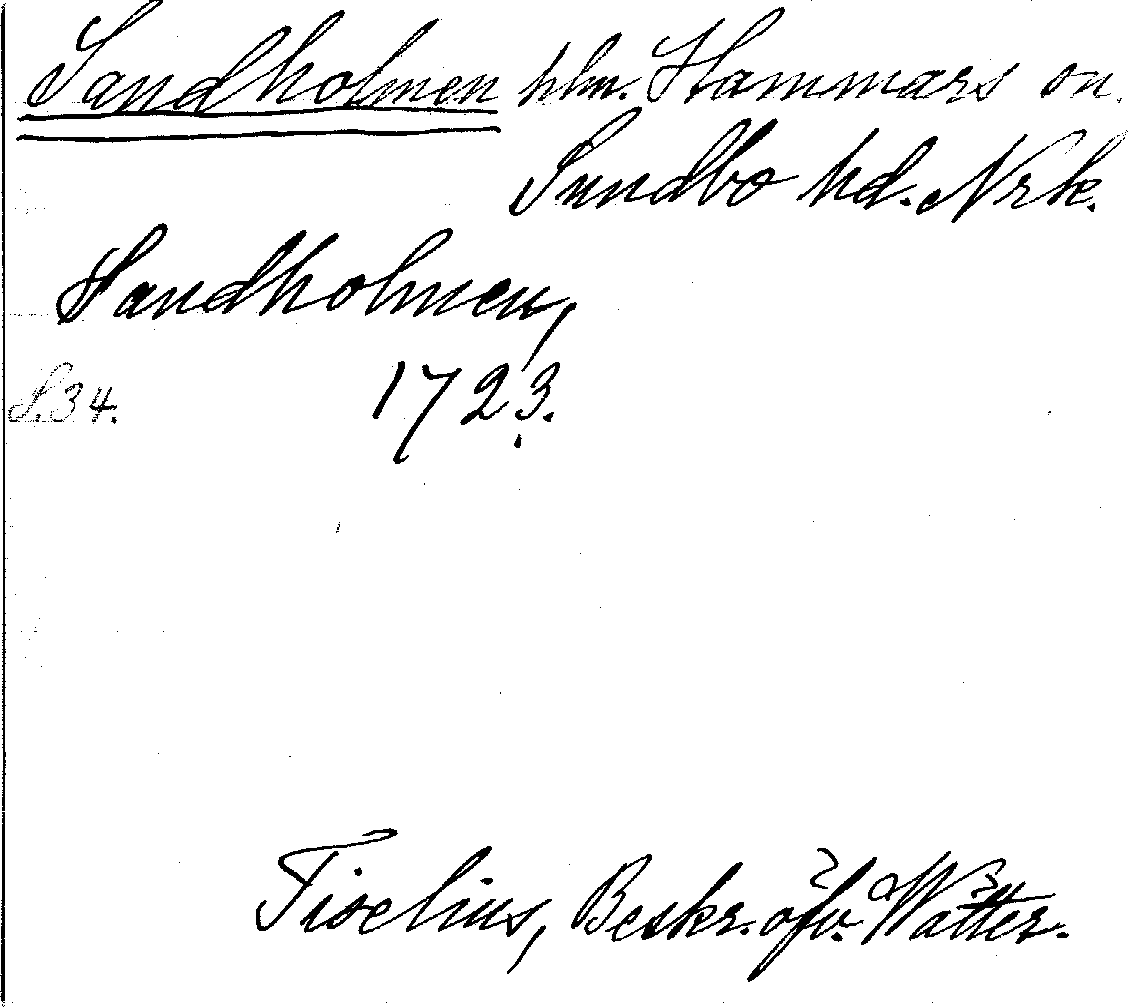 Sandholmen hlm. Hammars sn.
Sundbo hd. Nrk.
Sandholmen,
S. 34. 1723.
Tiselius, Beskr. öfv. Wätter.